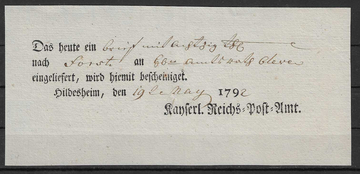 Das heute ein brief mit
nach Forst an
eingeliefert, wird hiemit bescheiniget.
Hildesheim, den 19 May 1792
Kayserl. Reichs-Post-Amt.